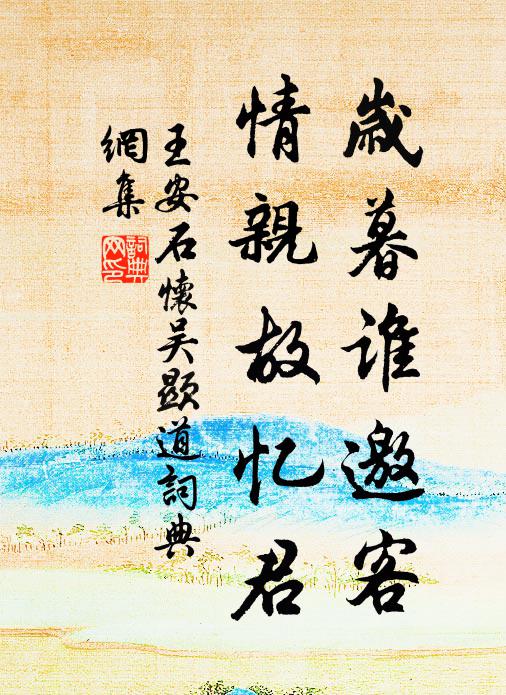 歲暮誰邀客
情親故忆君
王安石懷吴顯道詞典
網集
詞典網印